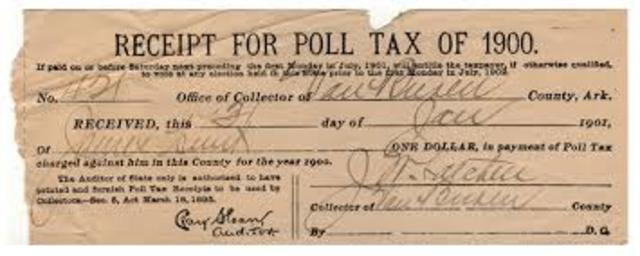 RECEIPT FOR POLL TAX OF 1900.
If paid on or before Saturday next preceding the first Monday in July, 1901, will entitle the taxpayer, if otherwise qualified,
to vote at any election held in this State prior to the first Monday in July, 1902.
No. Office of Collector of Van Buren County, Ark.
RECEIVED, this 21 day of Jan 1901,
Of ONE DOLLAR, in payment of Poll Tax
charged against him in this County for the year 1900.
The Auditor of State only is authorized to have
printed and furnish Poll Tax Receipts to be used by
Collectors—Sec. 5, Act March 18, 1895.
Clay Sloan
Auditor.
Collector of Van Buren County
By D. C.